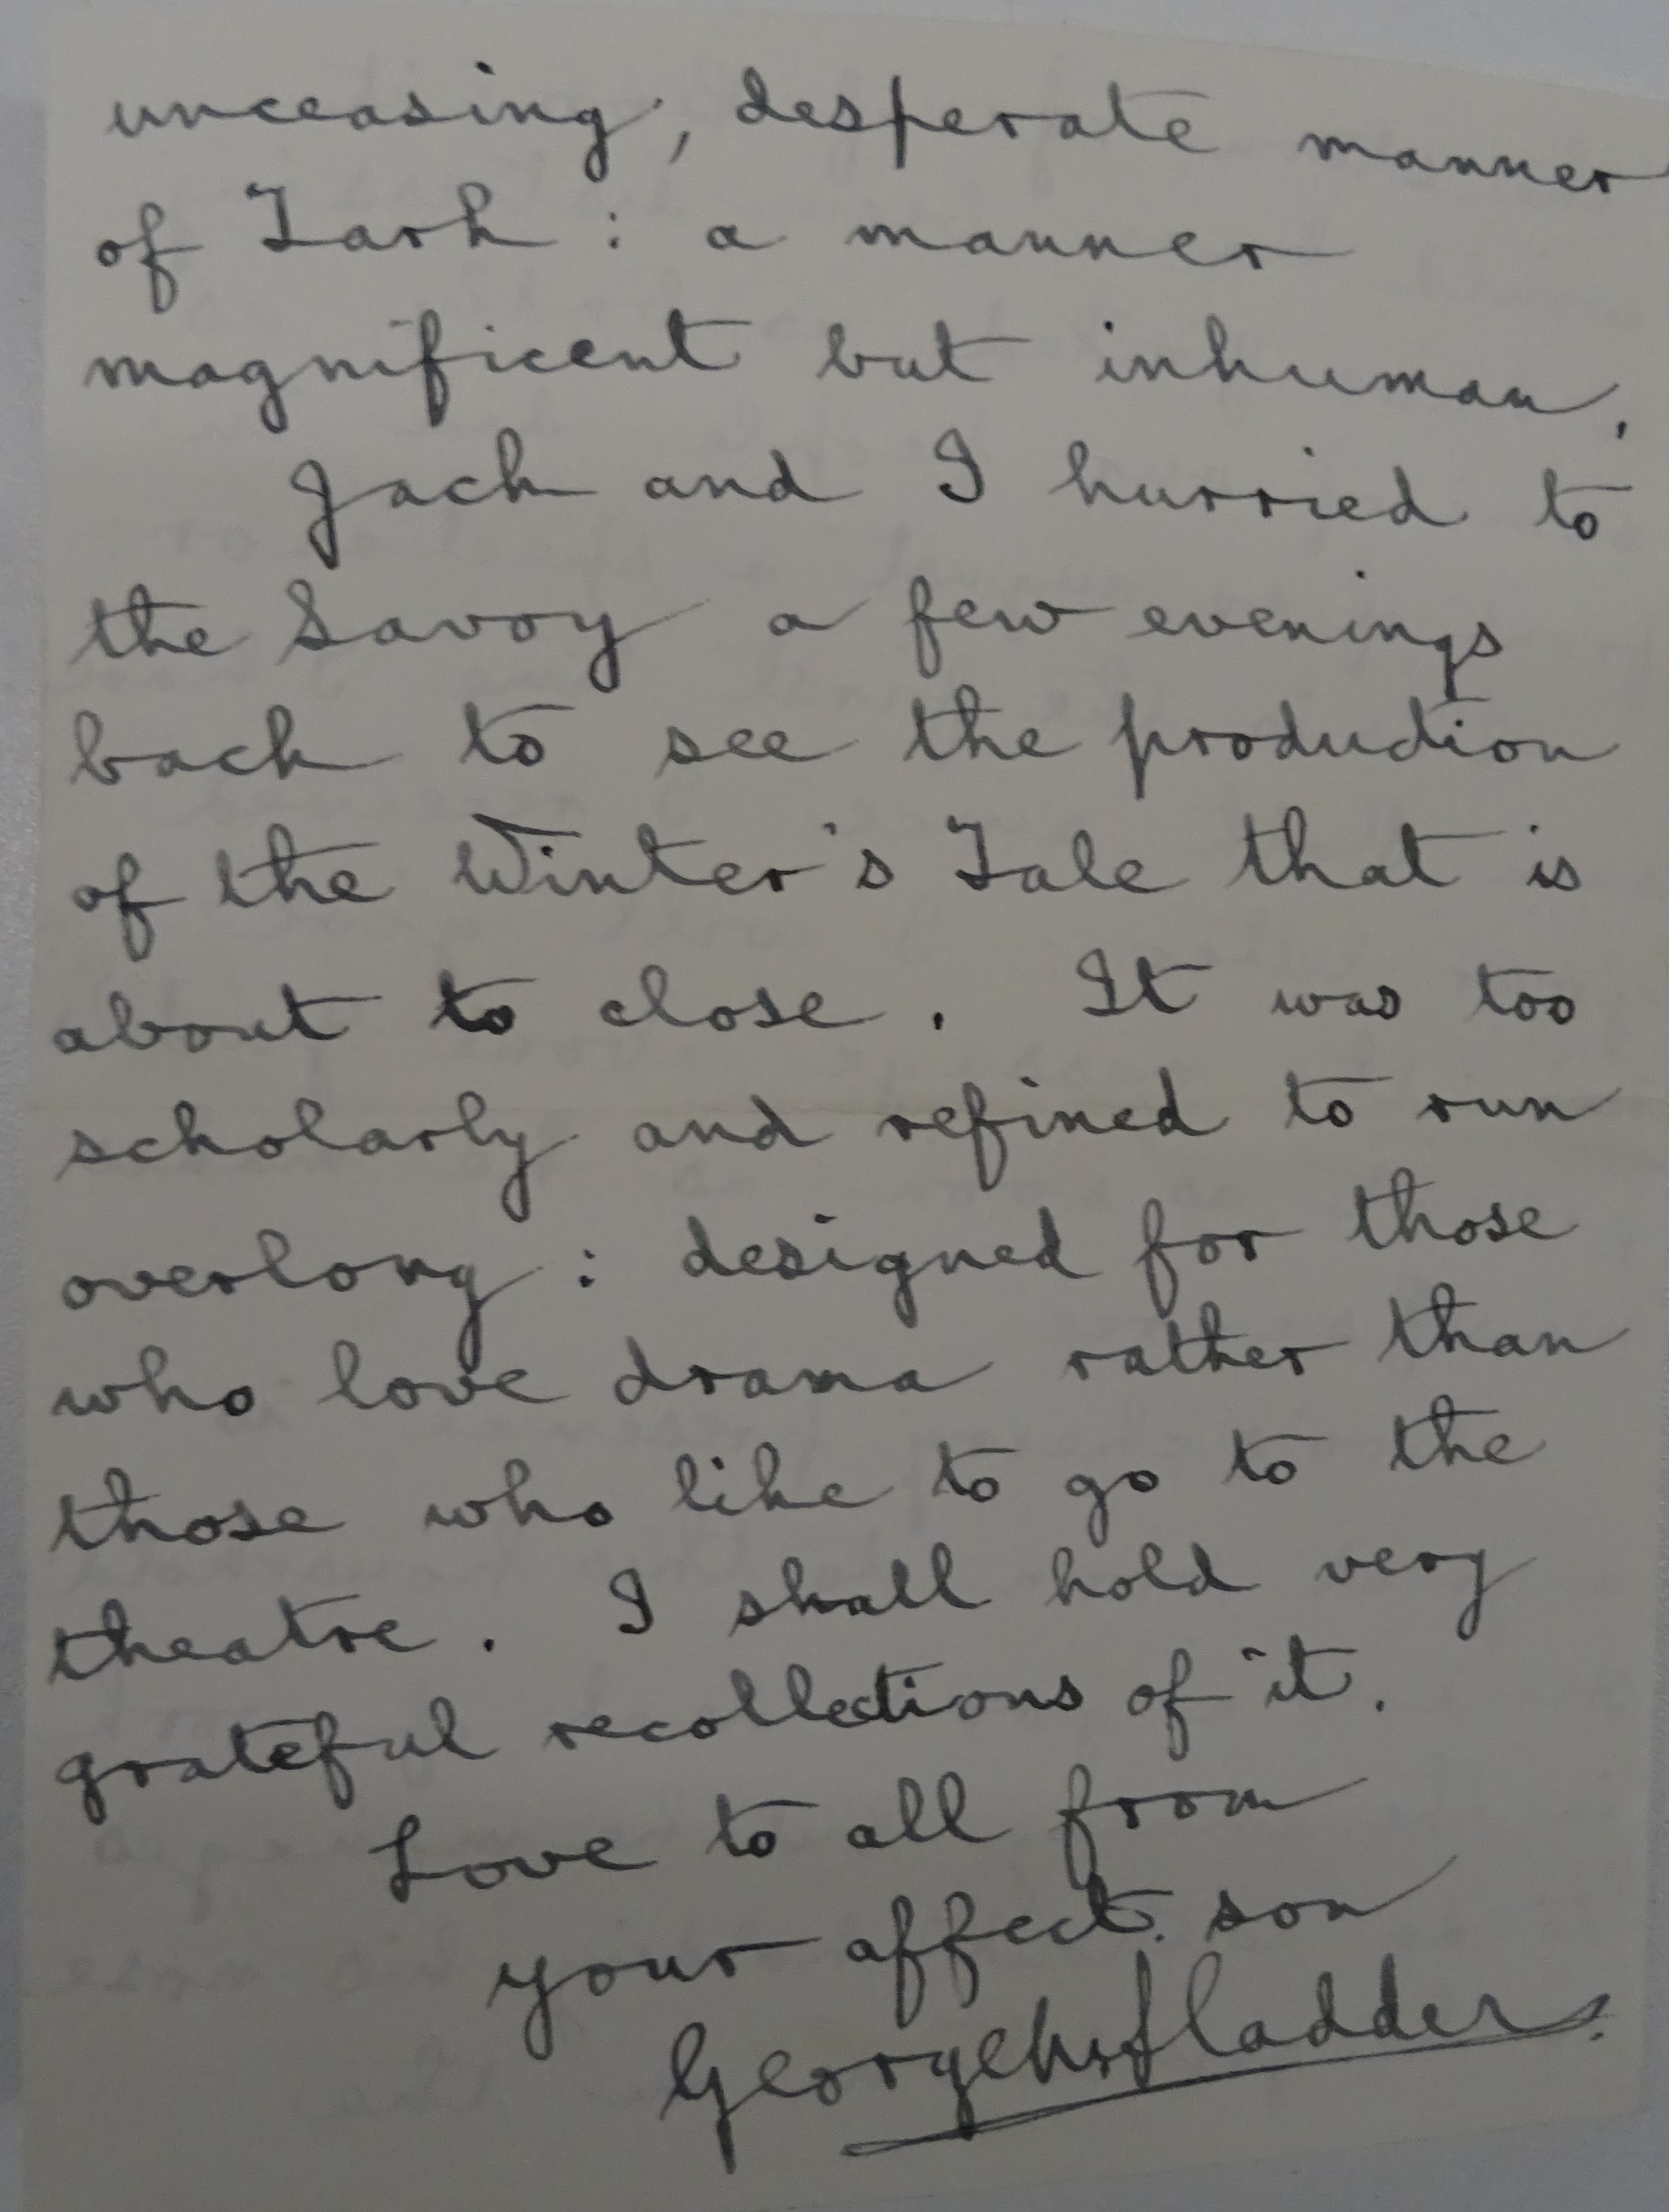 unceasing, desperate manner
of Tark : a manner
magnificent but inhuman.
Jack and I hurried to
the Savoy a few evenings
back to see the production
of the Winter's Tale that is
about to close. It was too
scholarly and refined to run
overlong : designed for those
who love drama rather than
those who like to go to the
theatre. I shall hold very
grateful recollections of it.
Love to all from
your affect. son